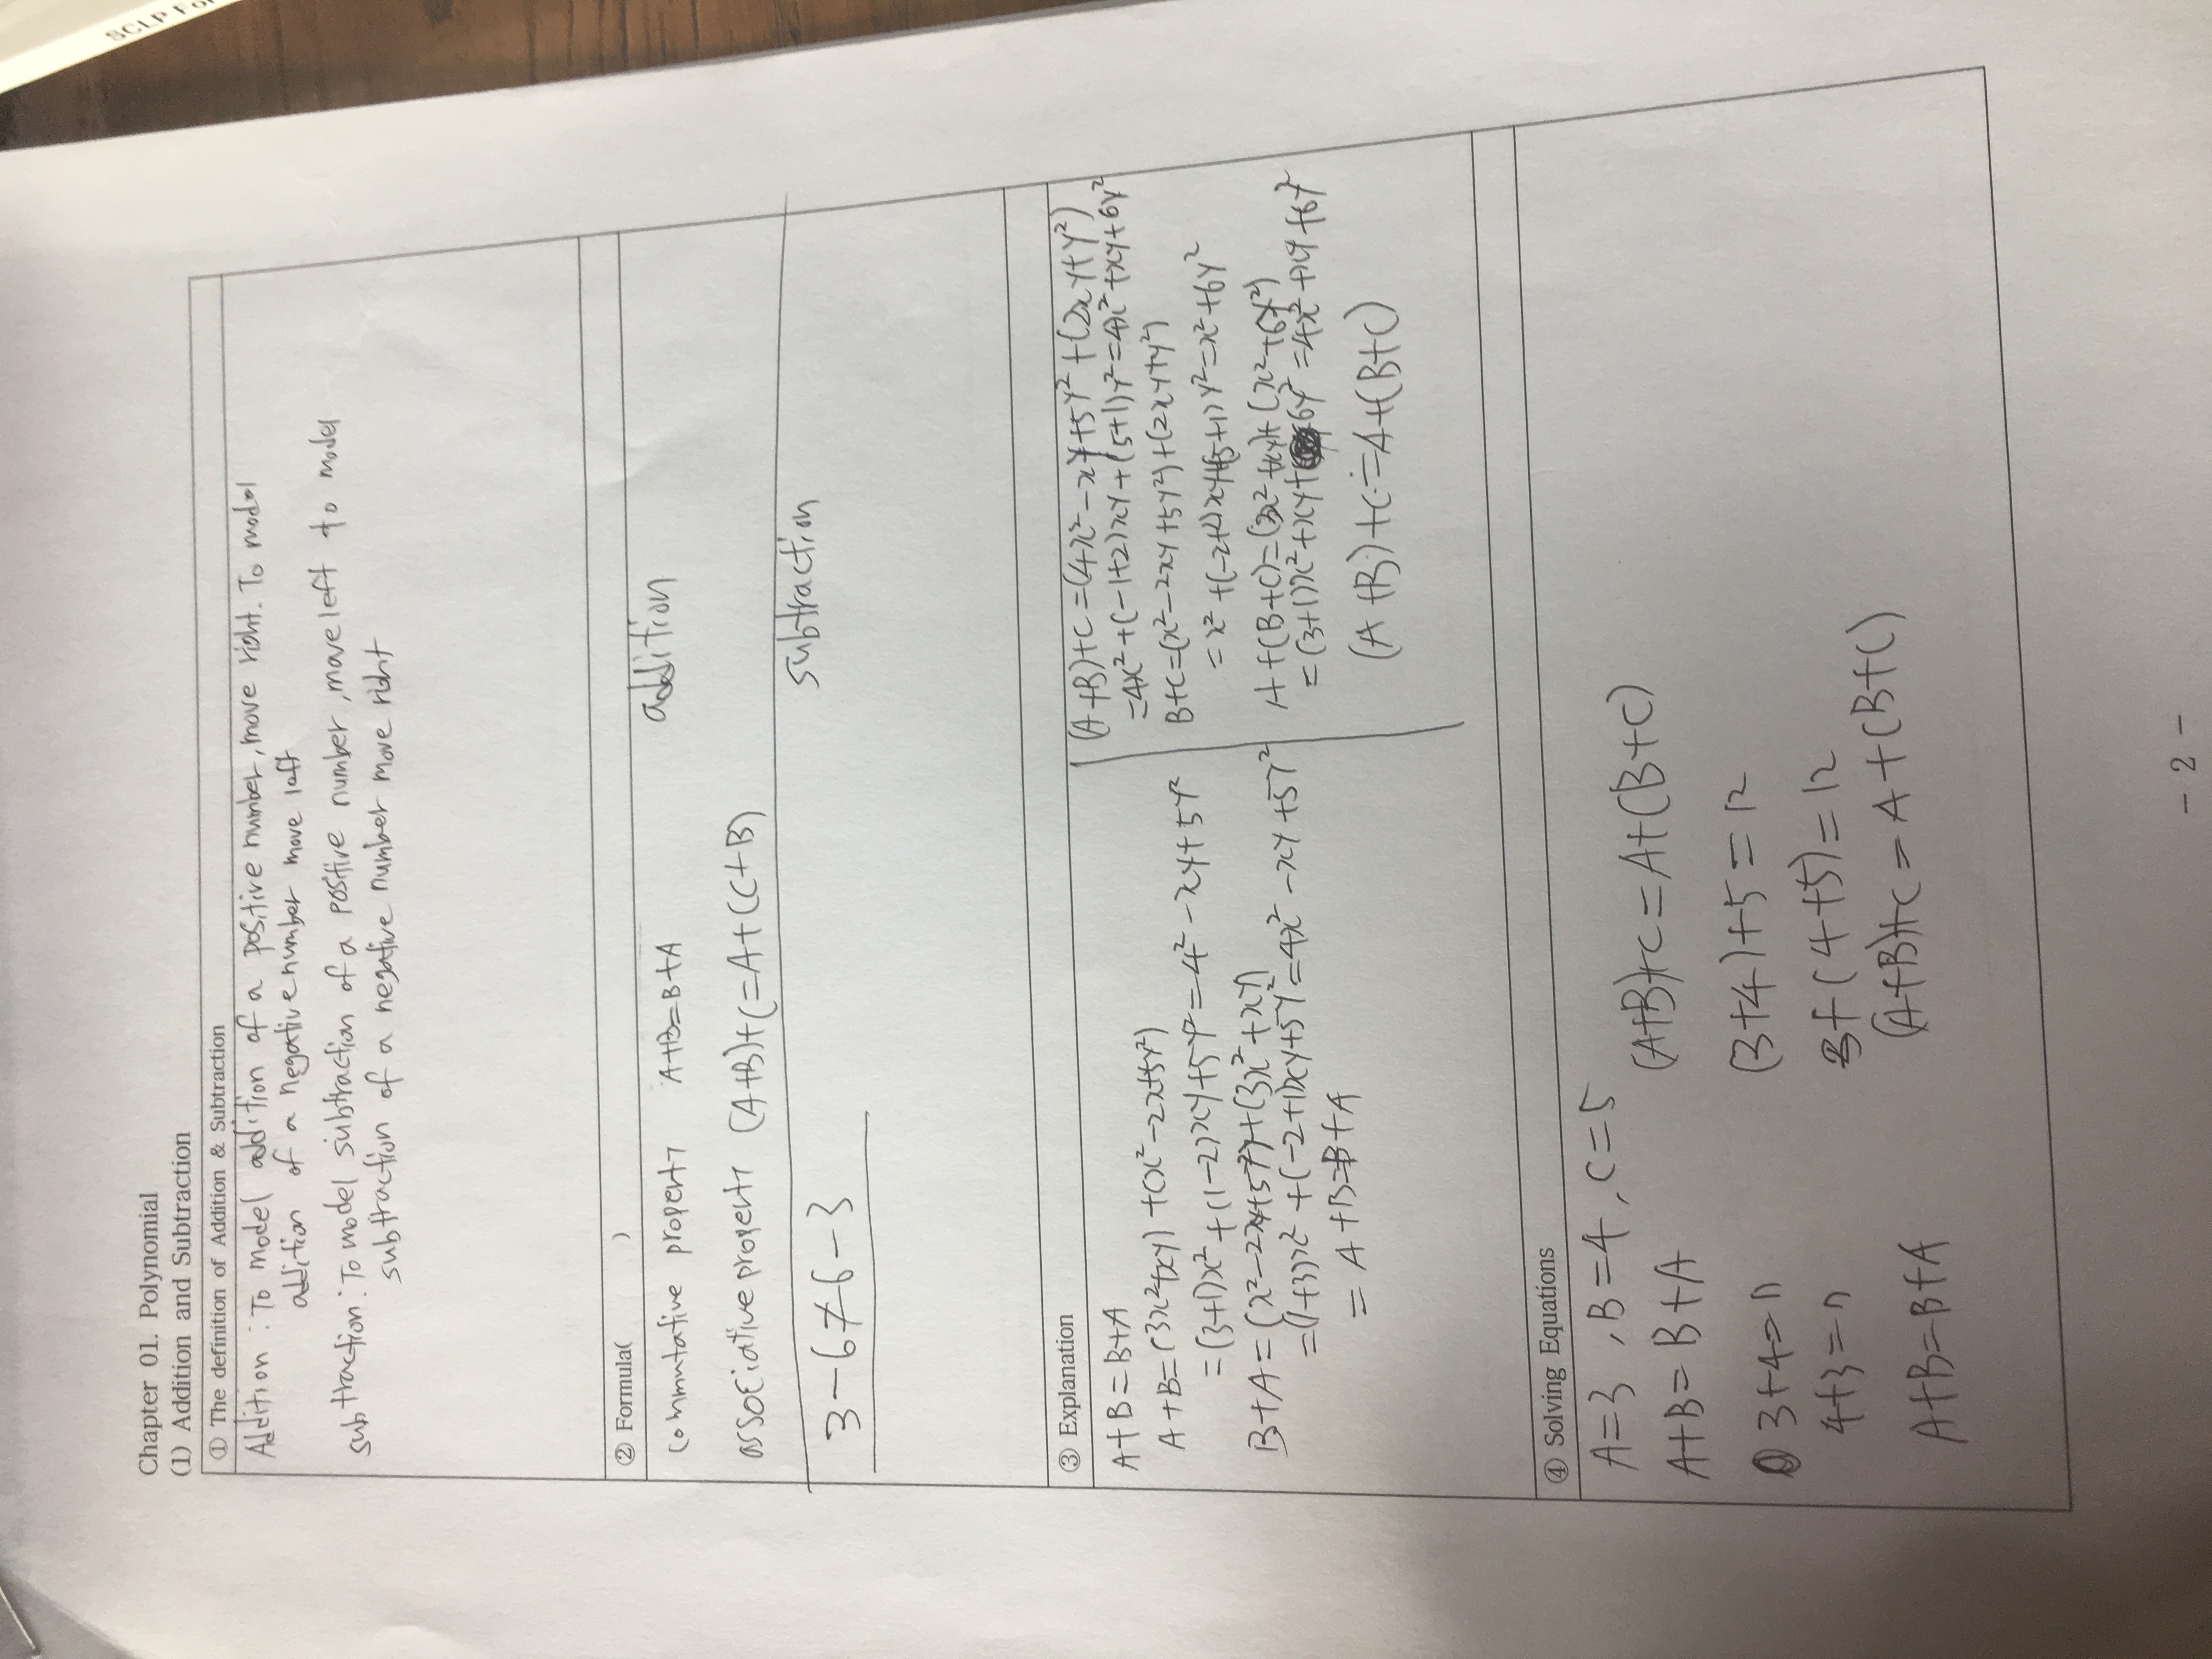 SCLP For
Chapter 01. Polynomial
(1) Addition and Subtraction
① The definition of Addition & Subtraction
Addition : To model addition of a positive number, move right. To model
addition of a negative number move left
subtraction: To model subtraction of a positive number, move left to model
subtraction of a negative number move right
② Formula( )
addition
commutative property A+B=B+A
associative property (A+B)+C=A+(C+B)
subtraction
3-6≠6-3
③ Explanation
A+B=B+A
A+B=(3x²+xy)+(x²-2x+5y²)
=(3+1)x²+(1-2)xy+5y²=4²-xy+5y²
B+A=(x²-2xy+5y²)+(3x²+xy)
=(1+3)x²+(-2+1)xy+5y²=4x²-xy+5y²
=A+B=B+A
(A+B)+C=(4x²-xy+5y²+(2xy+y²)
=4x²+(-1+2)xy+(5+1)y²=4x²+xy+6y²
B+C=(x²-2xy+5y²)+(2xy+y²)
=x²+(-2+2)xy+(5+1)y²=x²+6y²
A+(B+C)=(3x²+xy)+(x²+6y²)
=(3+1)x²+xy+6y²=4x²+xy+6y²
(A+B)+C=A+(B+C)
④ Solving Equations
A=3, B=4, C=5
A+B=B+A
3+4=7
4+3=7
A+B=B+A
(A+B)+C=A+(B+C)
(3+4)+5=12
3+(4+5)=12
(A+B)+C=A+(B+C)
- 2 -